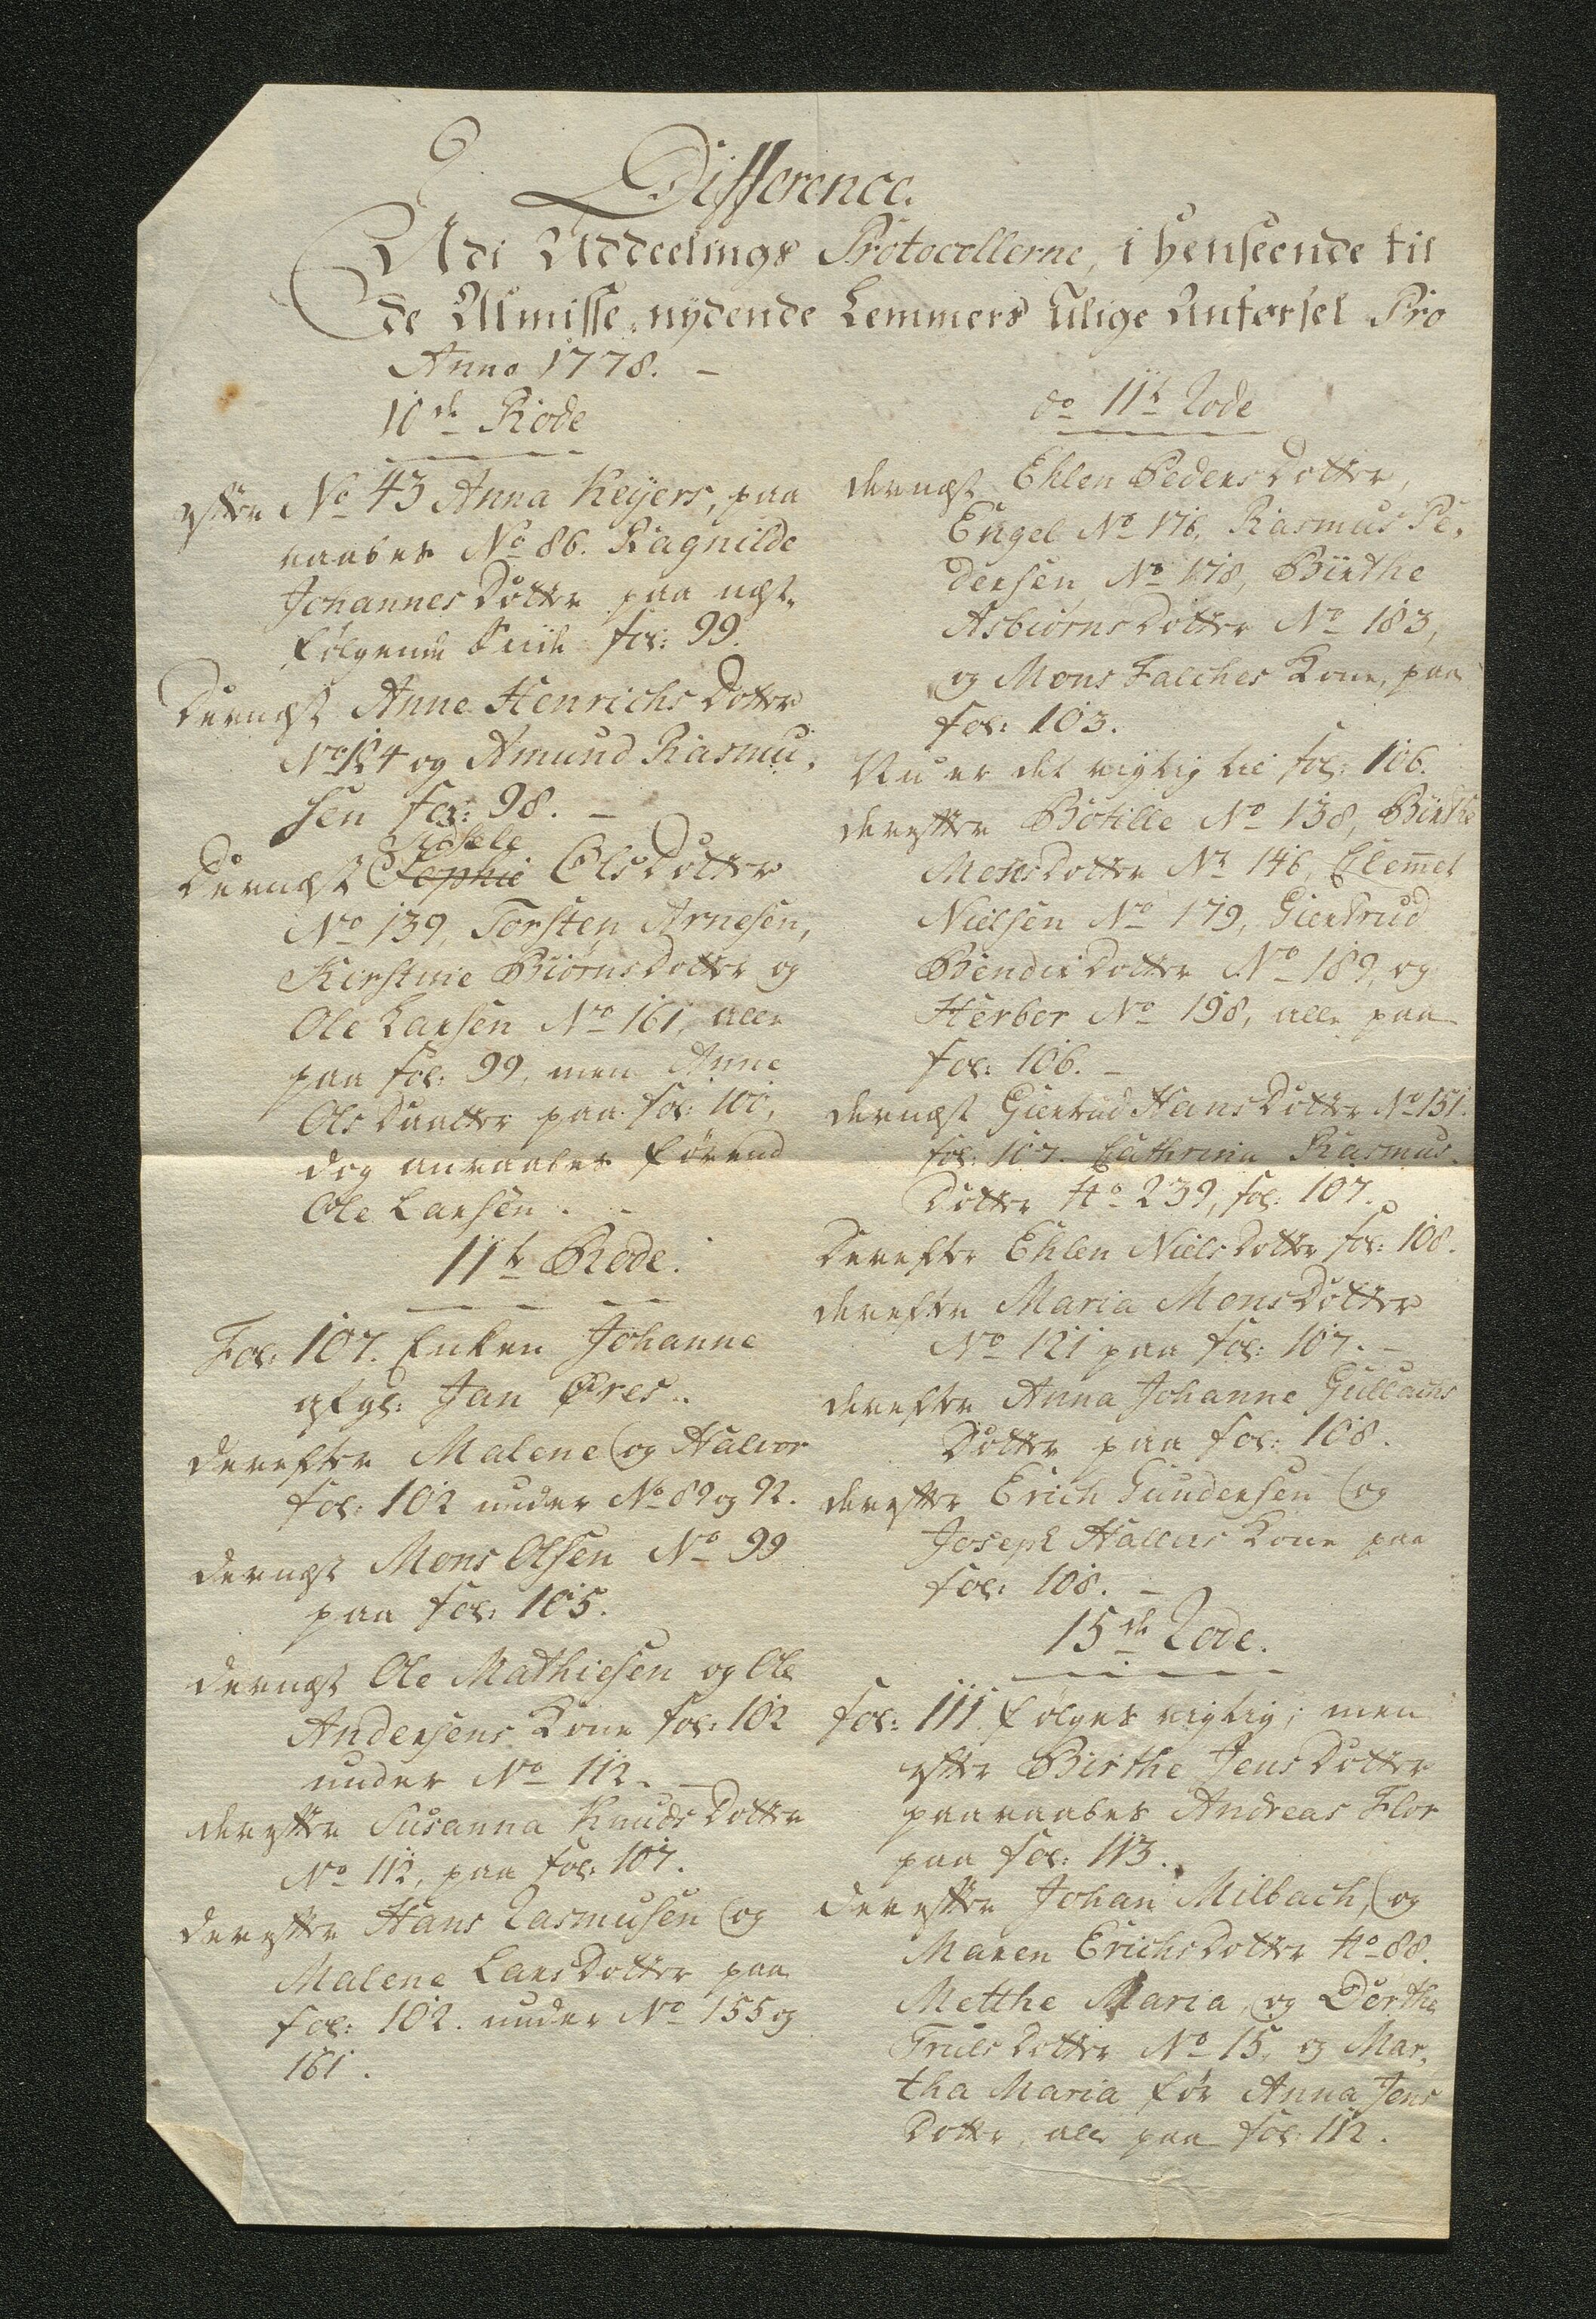 Difference.
Udi Uddeelings Protocollerne, i henseende til
de Almisse-nydende Lemmers Ulige Anførsel Pro
Anno 1778. –
10de Rode
efter No 43 Anna Keyers, paa
raabes No 86. Ragnilde
Johannes Dotter paa næst-
følgende Siide fol: 99.
Dernæst Anne Henrichs Dotter
No 124 og Amund Rasmu-
sen fol: 98. –
Sidsele
Dernæst Sophie Ols Dotter
No 139, Torsten Arnesen,
Kirstine Biørns Dotter og
Ole Larsen No 161, alle
paa fol: 99, men Anne
Ols Daatter paa fol: 100,
dog anraabes førend
Ole Larsen. –
11te Rode.
Fol: 107. Enken Johanne
afgl: Jan Øres.
derefter Malene og Halvor
fol: 102 under No 89 og 92.
dernæst Mons Olsen No 99
paa fol: 105.
dernæst Ole Mathiesen og Ole
Andersens Kone fol: 102
under No 112. –
derefter Susanna Knuds Dotter
No 112, paa fol: 107.
derefter Hans Rasmusen og
Malene Lars Dotter paa
fol: 102. under No 155 og
161.
do 11te Rode
dernæst Ehlen Peders Dotter,
Engel No 176, Rasmus Pe-
dersen, No 178, Birthe
Asbiørns Dotter No 183,
og Mons Falches Kone, paa
fol: 103.
Nu er det rigtig til fol: 106.
derefter Botille No 138, Birthe
Mons Dotter No 146, Clemmet
Nielsen No 179, Giertrud
Bendix Dotter No 189, og
Herbor No 198, alle paa
fol: 106. –
dernæst Giertrud Hans Dotter No 151.
fol: 107. Cathrina Rasmus-
Dotter No 239, fol: 107.
Derefter Ehlen Niels Dotter fol: 108.
derefter Maria Mons Dotter
No 121 paa fol: 107. –
derefter Anna Johanne Gullachs
Dotter paa fol: 108.
derefter Erich Gundersen og
Joseph Kone paa
fol: 108. –
15de Rode.
fol: 111 følges rigtig; men
efter Birthe Jens Dotter
paaraabes Andreas Flor
paa fol: 113.
derefter Johan Milbach, og
Maren Erichs Dotter No 88.
Metthe Maria, og Dorthe
Truls Dotter No 15, og Mar-
tha Maria før Anna Jens
Dotter, alle paa fol: 112.